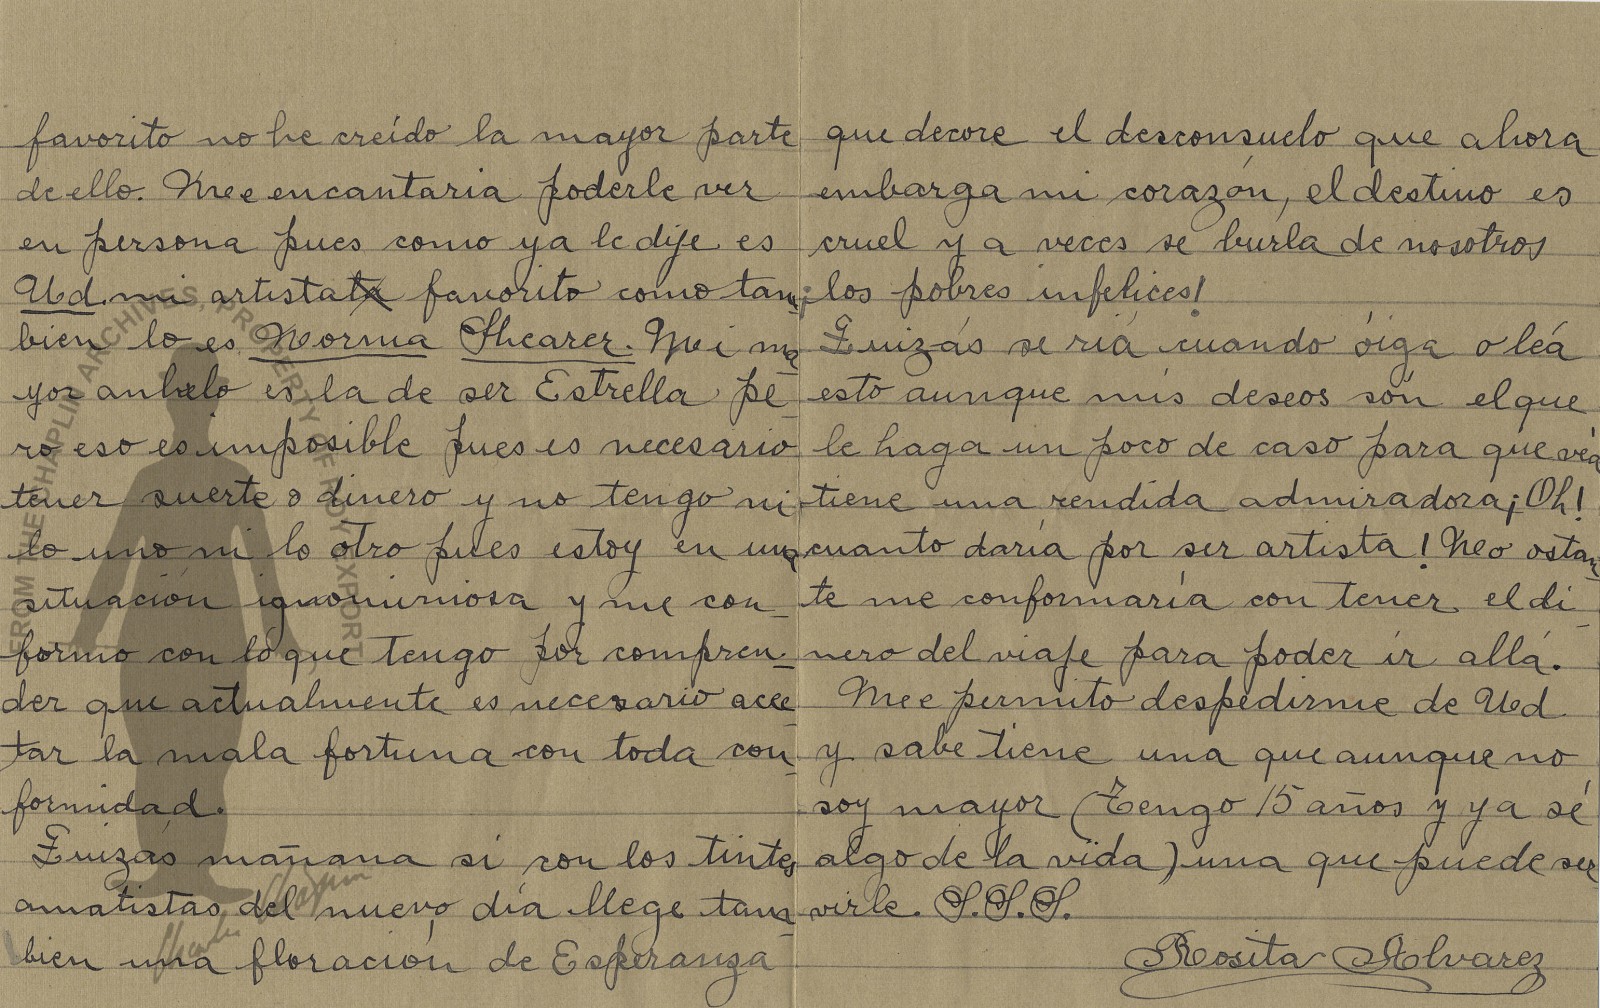 favorito no he creído la mayor parte
de ello. Me encantaria poderle ver
en persona pues como ya le dije es
Ud. mi artista favorito como tam-
bien lo es Norma Shearer. Mi ma-
yor anhelo es la de ser Estrella pe-
ro eso es imposible pues es necesario
tener suerte o dinero y no tengo ni
lo uno ni lo otro pues estoy en una
situación ignominiosa y me con-
formo con lo que tengo por compren-
der que actualmente es necesario acep-
tar la mala fortuna con toda con-
formidad.
Quizás mañana si con los tintes
amatistas del nuevo día llege tam-
bien una floración de Esperanza
que decore el desconsuelo que ahora
embarga mi corazón, el destino es
cruel y a veces se burla de nosotros
¡los pobres infelices!
Quizás se ría cuando óiga o léa
esto aunque mis deseos són el que
le haga un poco de caso para que véa
tiene una rendida admiradora ¡Oh!
cuanto daría por ser artista! No ostan-
te me conformaría con tener el di-
nero del viaje para poder ir allá.
Me permito despedirme de Ud
y sabe tiene una que aunque no
soy mayor (Tengo 15 años y ya sé
algo de la vida) una que puede ser
virle. S.S.S.
Rosita Alvarez
FROM THE CHAPLIN ARCHIVES, PROPERTY OF ROY EXPORT
Charlie Chaplin